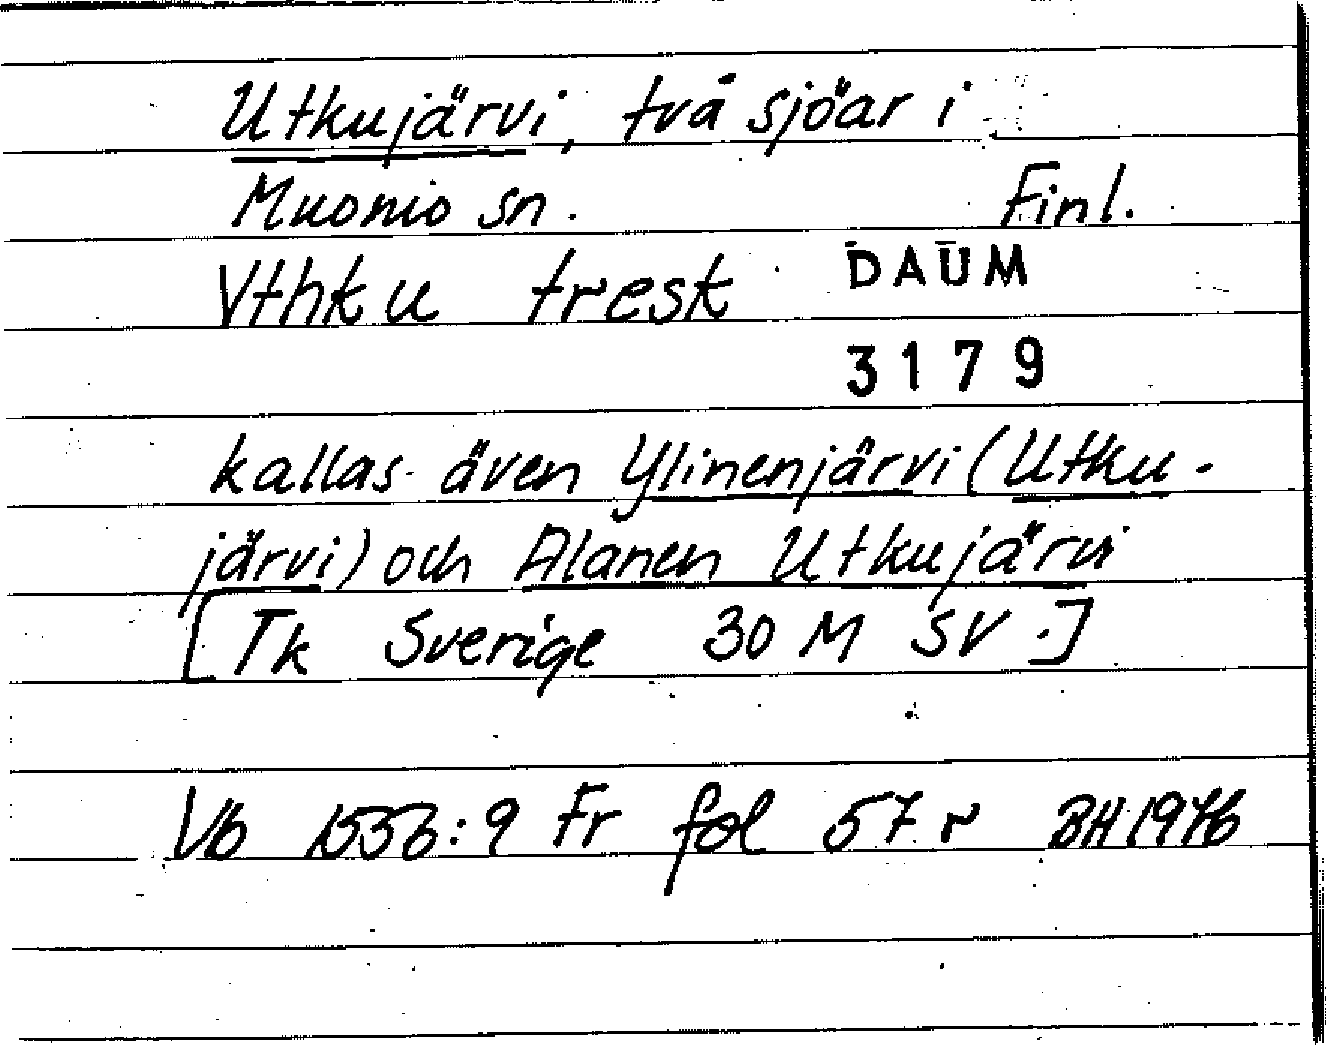 Utkujärvi, två sjöar i
Muonio sn. Finl.
Vthku trest DAUM
3179
kallas även Ylinenjärvi (Utku-
järvi) och Alanen Utkujärvi
[Tk Sverige 30 M SV.]
Vb 1553:9 Fr fol 57 r BH 1976